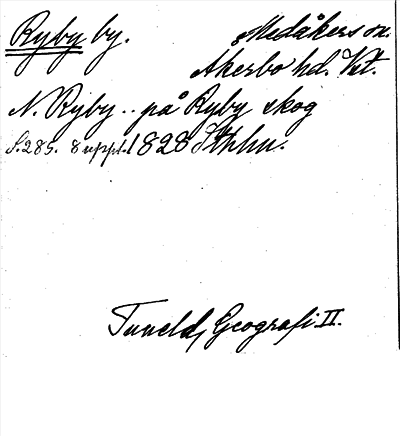 Ryby by. Medåkers sn.
Åkerbo hd. Vst.
N. Ryby .. på Ryby skog
S. 285. 8 uppl. 1828 Sthlm.
Tuneld, Geografi II.